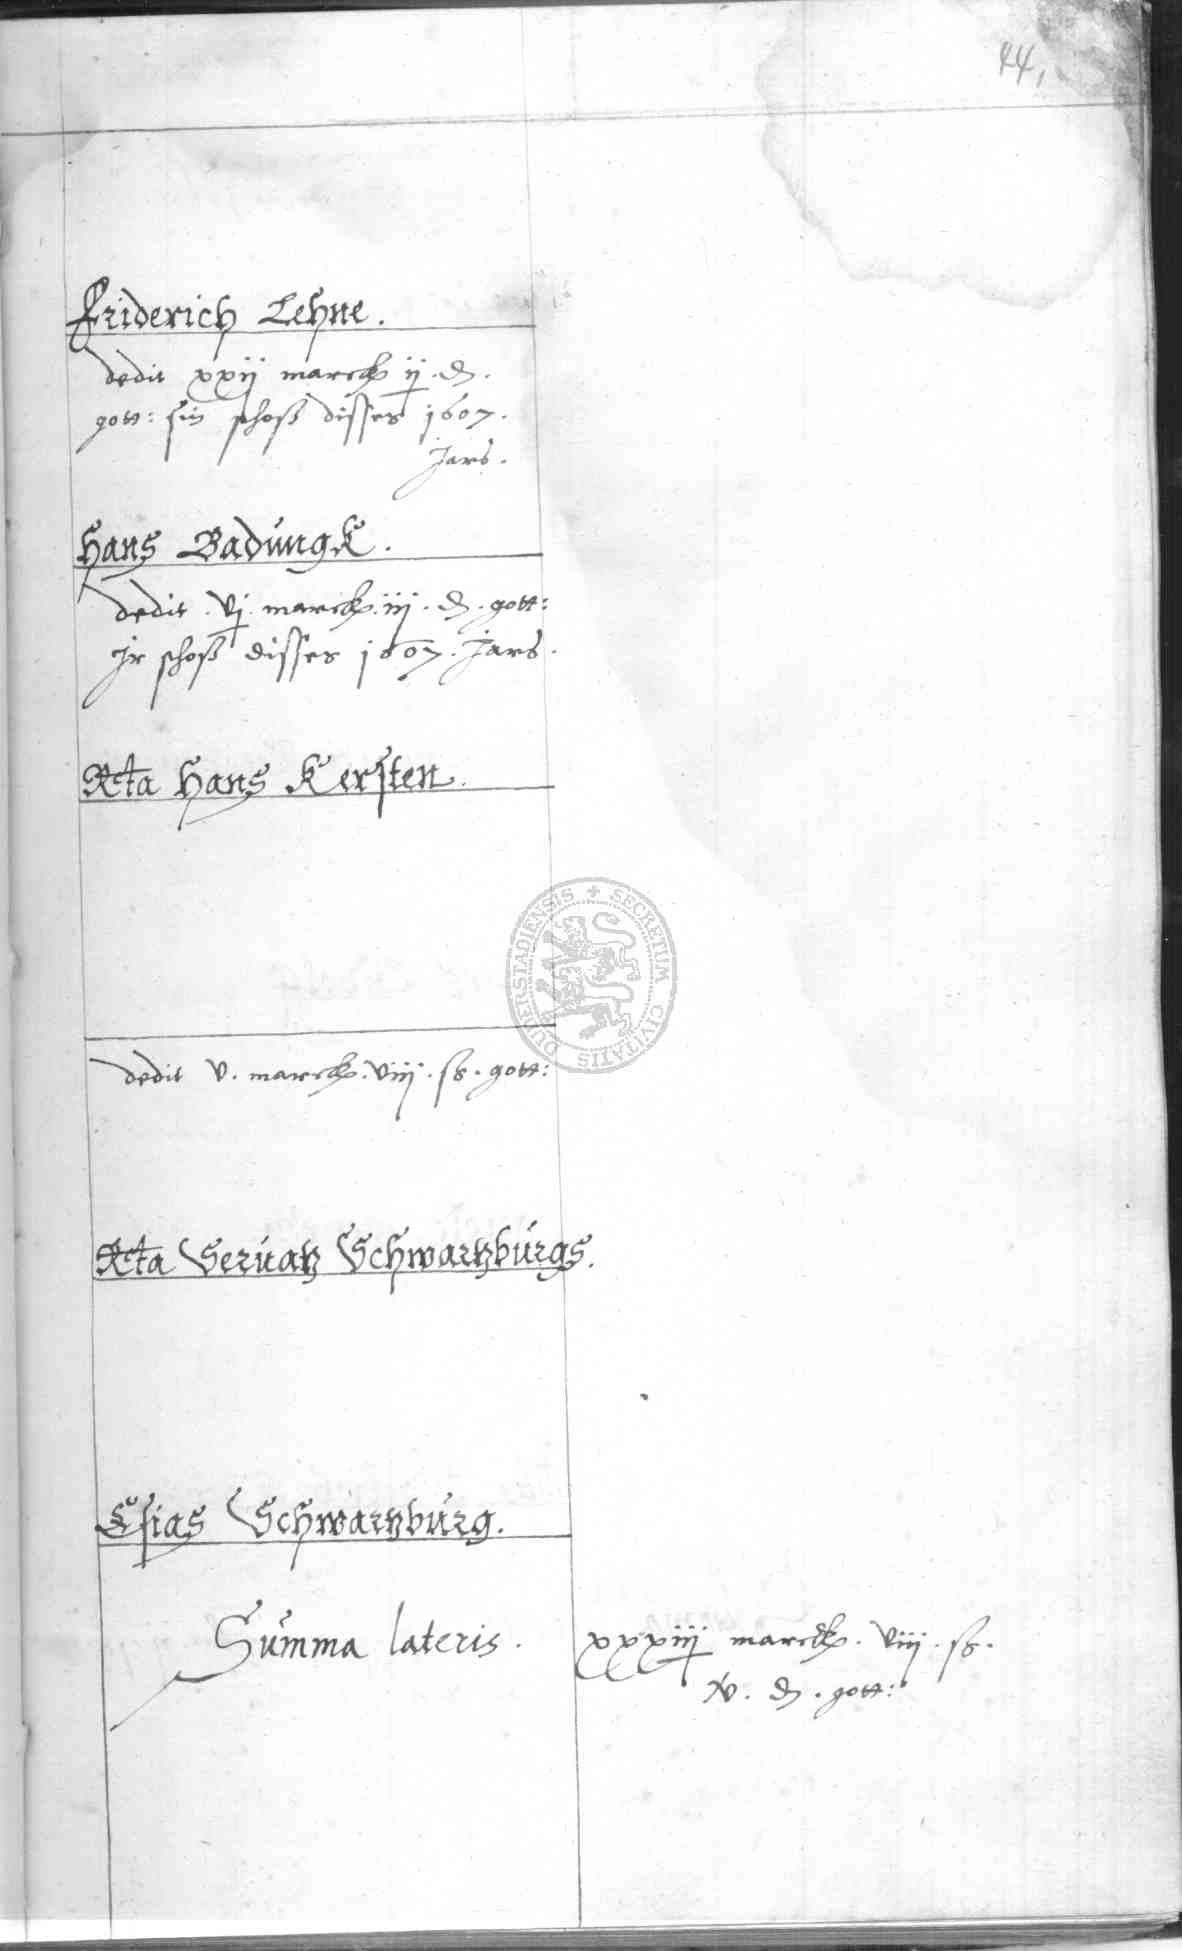 44,
Friderich Lehne.
dedit xxij marck ij. d.
gott: sin schoß disses 1607.
Jars.
Hans Badüngk.
dedit. vj. marck. iij. d. gott:
Jr schoß disses 1607. Jars.
Rta Hans Kersten.
SECRETUM CIVITATIS DUDERSTADIENSIS
dedit v. marck. viij. ß. gott:
Rta Seruatz Schwartzbürgs.
Esias Schwartzbürg.
Summa lateris. xxxiij marck. viij. ß.
v. d. gott: